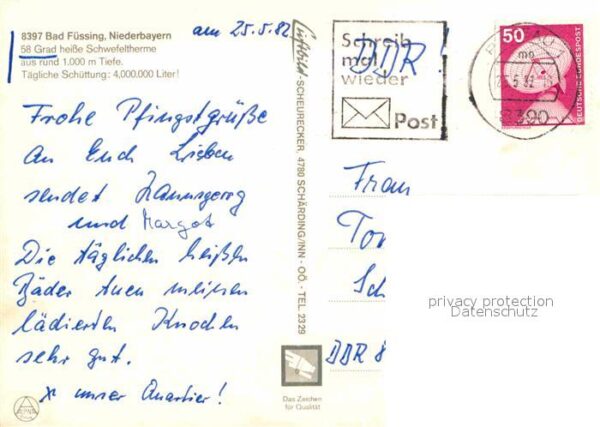 8397 Bad Füssing, Niederbayern
58 Grad heiße Schwefeltherme
aus rund 1.000 m Tiefe.
Tägliche Schüttung: 4,000.000 Liter!
am 25.5.82
Frohe Pfingstgrüße
an Euch Lieben
sendet Hannsgeorg
und Margot
Die täglichen heißen
Bäder tuen meinen
lädierten Knochen
sehr gut.
x unser Quartier!
Luftbild-SCHEURECKER, 4780 SCHÄRDING/INN - OÖ. - TEL 2329
Das Zeichen
für Qualität
Schreib
mal
wieder
Post
DDR!
50
DEUTSCHE BUNDESPOST
PASSAU 1
mo
8390
Fram
Tor
Sch
DDR 8
privacy protection
Datenschutz